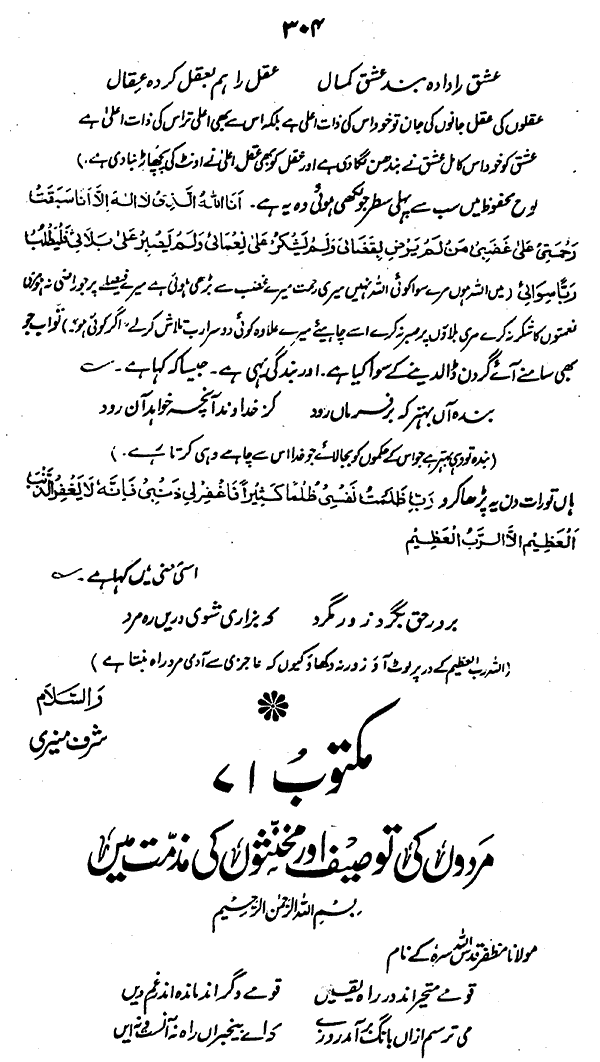 ۳۰۴
عشق را داده بند عشق کمال عقل را ہم بعقل کردہ عقال
عقلوں کی عقل جانوں کی جان تو خود اس کی ذات اعلیٰ ہے بلکہ اس سے بھی اعلیٰ تر اس کی ذات اعلیٰ ہے
عشق کو خود اس کامل عشق نے بندھن لگا دی ہے اور عقل کو بھی عقل اعلیٰ نے اونٹ کی پچھاڑ بنا دی ہے.)
لوح محفوظ میں سب سے پہلی سطر جو لکھی ہوئی وہ یہ ہے۔ اَنَا اللهُ الَّذِیْ لَا اِلٰهَ اِلَّا اَنَا سَبَقَتْ
رَحْمَتِیْ عَلٰی غَضَبِیْ مَنْ لَمْ یَرْضَ لِقَضَائِیْ وَلَمْ لَیَشْکُرْ عَلٰی نِعْمَائِیْ وَلَمْ لَیَصْبِرْ عَلٰی بَلَائِیْ فَلْیَطْلُبْ
رَبًّا سِوَائِیْ (میں اللہ ہوں مرے سوا کوئی اللہ نہیں میری رحمت میرے غضب سے بڑھی ہوئی ہے میرے فیصلے پر جو راضی نہ ہو میری
نعمتوں کا شکر نہ کرے مری بلاؤں پر صبر نہ کرے اسے چاہیئے میرے علاوہ کوئی دوسرا رب تلاش کرلے "اگر کوئی ہو") تو اب جو
بھی سامنے آئے گردن ڈالدینے کے سوا کیا ہے۔ اور بندگی یہی ہے۔ جیسا کہ کہا ہے۔
بندہ آں بہتر کہ بر فرماں رود کز خداوند آنچہ خواہد آن رود
(بندہ تو وہی بہتر ہے جو اس کے حکموں کو بجا لائے جو خدا اس سے چاہے وہی کرتا ہے.)
ہاں تو رات دن یہ پڑھا کرو رَبِّ ظَلَمْتُ نَفْسِیْ ظُلْمًا کَثِیْرًا فَاغْفِرْ لِیْ ذَنْبِیْ فَاِنَّهٗ لَا یَغْفِرُ الذَّنْبَ
الْعَظِیْمَ اِلَّا الرَّبُّ الْعَظِیْمُ
اسی معنی میں کہا ہے۔
بر در حق بگرد زور مگرد کہ بزاری شوی دریں رہ مرد
(اللہ رب العظیم کے در پر لوٹ آؤ زور نہ دکھاؤ کیوں کہ عاجزی سے آدمی مرد راہ بنتا ہے)
والسّلام
شرف منیری
مکتوب ۷۱
مردوں کی توصیف اور مخنّثوں کی مذمّت میں
بِسْمِ اللهِ الرَّحْمٰنِ الرَّحِیْم
مولانا مظفر قدس اللہ سرہ کے نام
قومے متحیر اندر راہ یقیں قومے دگر اندماندہ اندر غم دیں
می ترسم ازاں بانگ بر آمد روزے کہ اے بیخبراں راہ نہ آنست نہ ایں